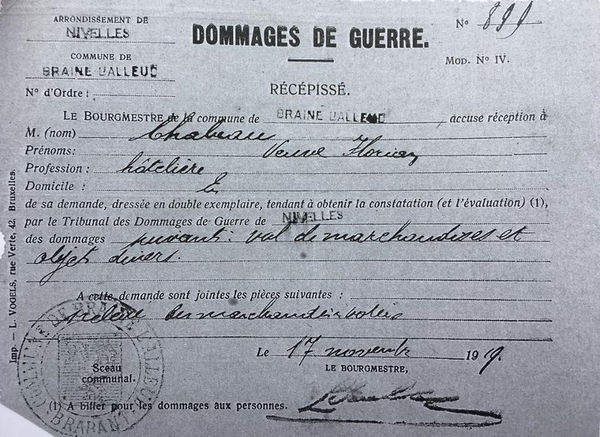 ARRONDISSEMENT DE
NIVELLES
COMMUNE DE
BRAINE L'ALLEUD
N° d'Ordre :
DOMMAGES DE GUERRE.
N° 899
MOD. N° IV.
RÉCÉPISSÉ.
LE BOURGMESTRE de la commune de BRAINE L'ALLEUD accuse réception à
M. (nom) Chabeau
Prénoms: Veuve Florian
Profession : hôtelière
Domicile :
de sa demande, dressée en double exemplaire, tendant à obtenir la constatation (et l'évaluation) (1),
par le Tribunal des Dommages de Guerre de NIVELLES
des dommages suivants : vol de marchandises et
objets divers.
A cette demande sont jointes les pièces suivantes :
des marchandises volées
Le 17 novembre 1919.
LE BOURGMESTRE,
Sceau
communal.
(1) A biffer pour les dommages aux personnes.
Imp. — L. VOGELS, rue Verte, 42, Bruxelles.
COMMUNE DE BRAINE L'ALLEUD
BRABANT